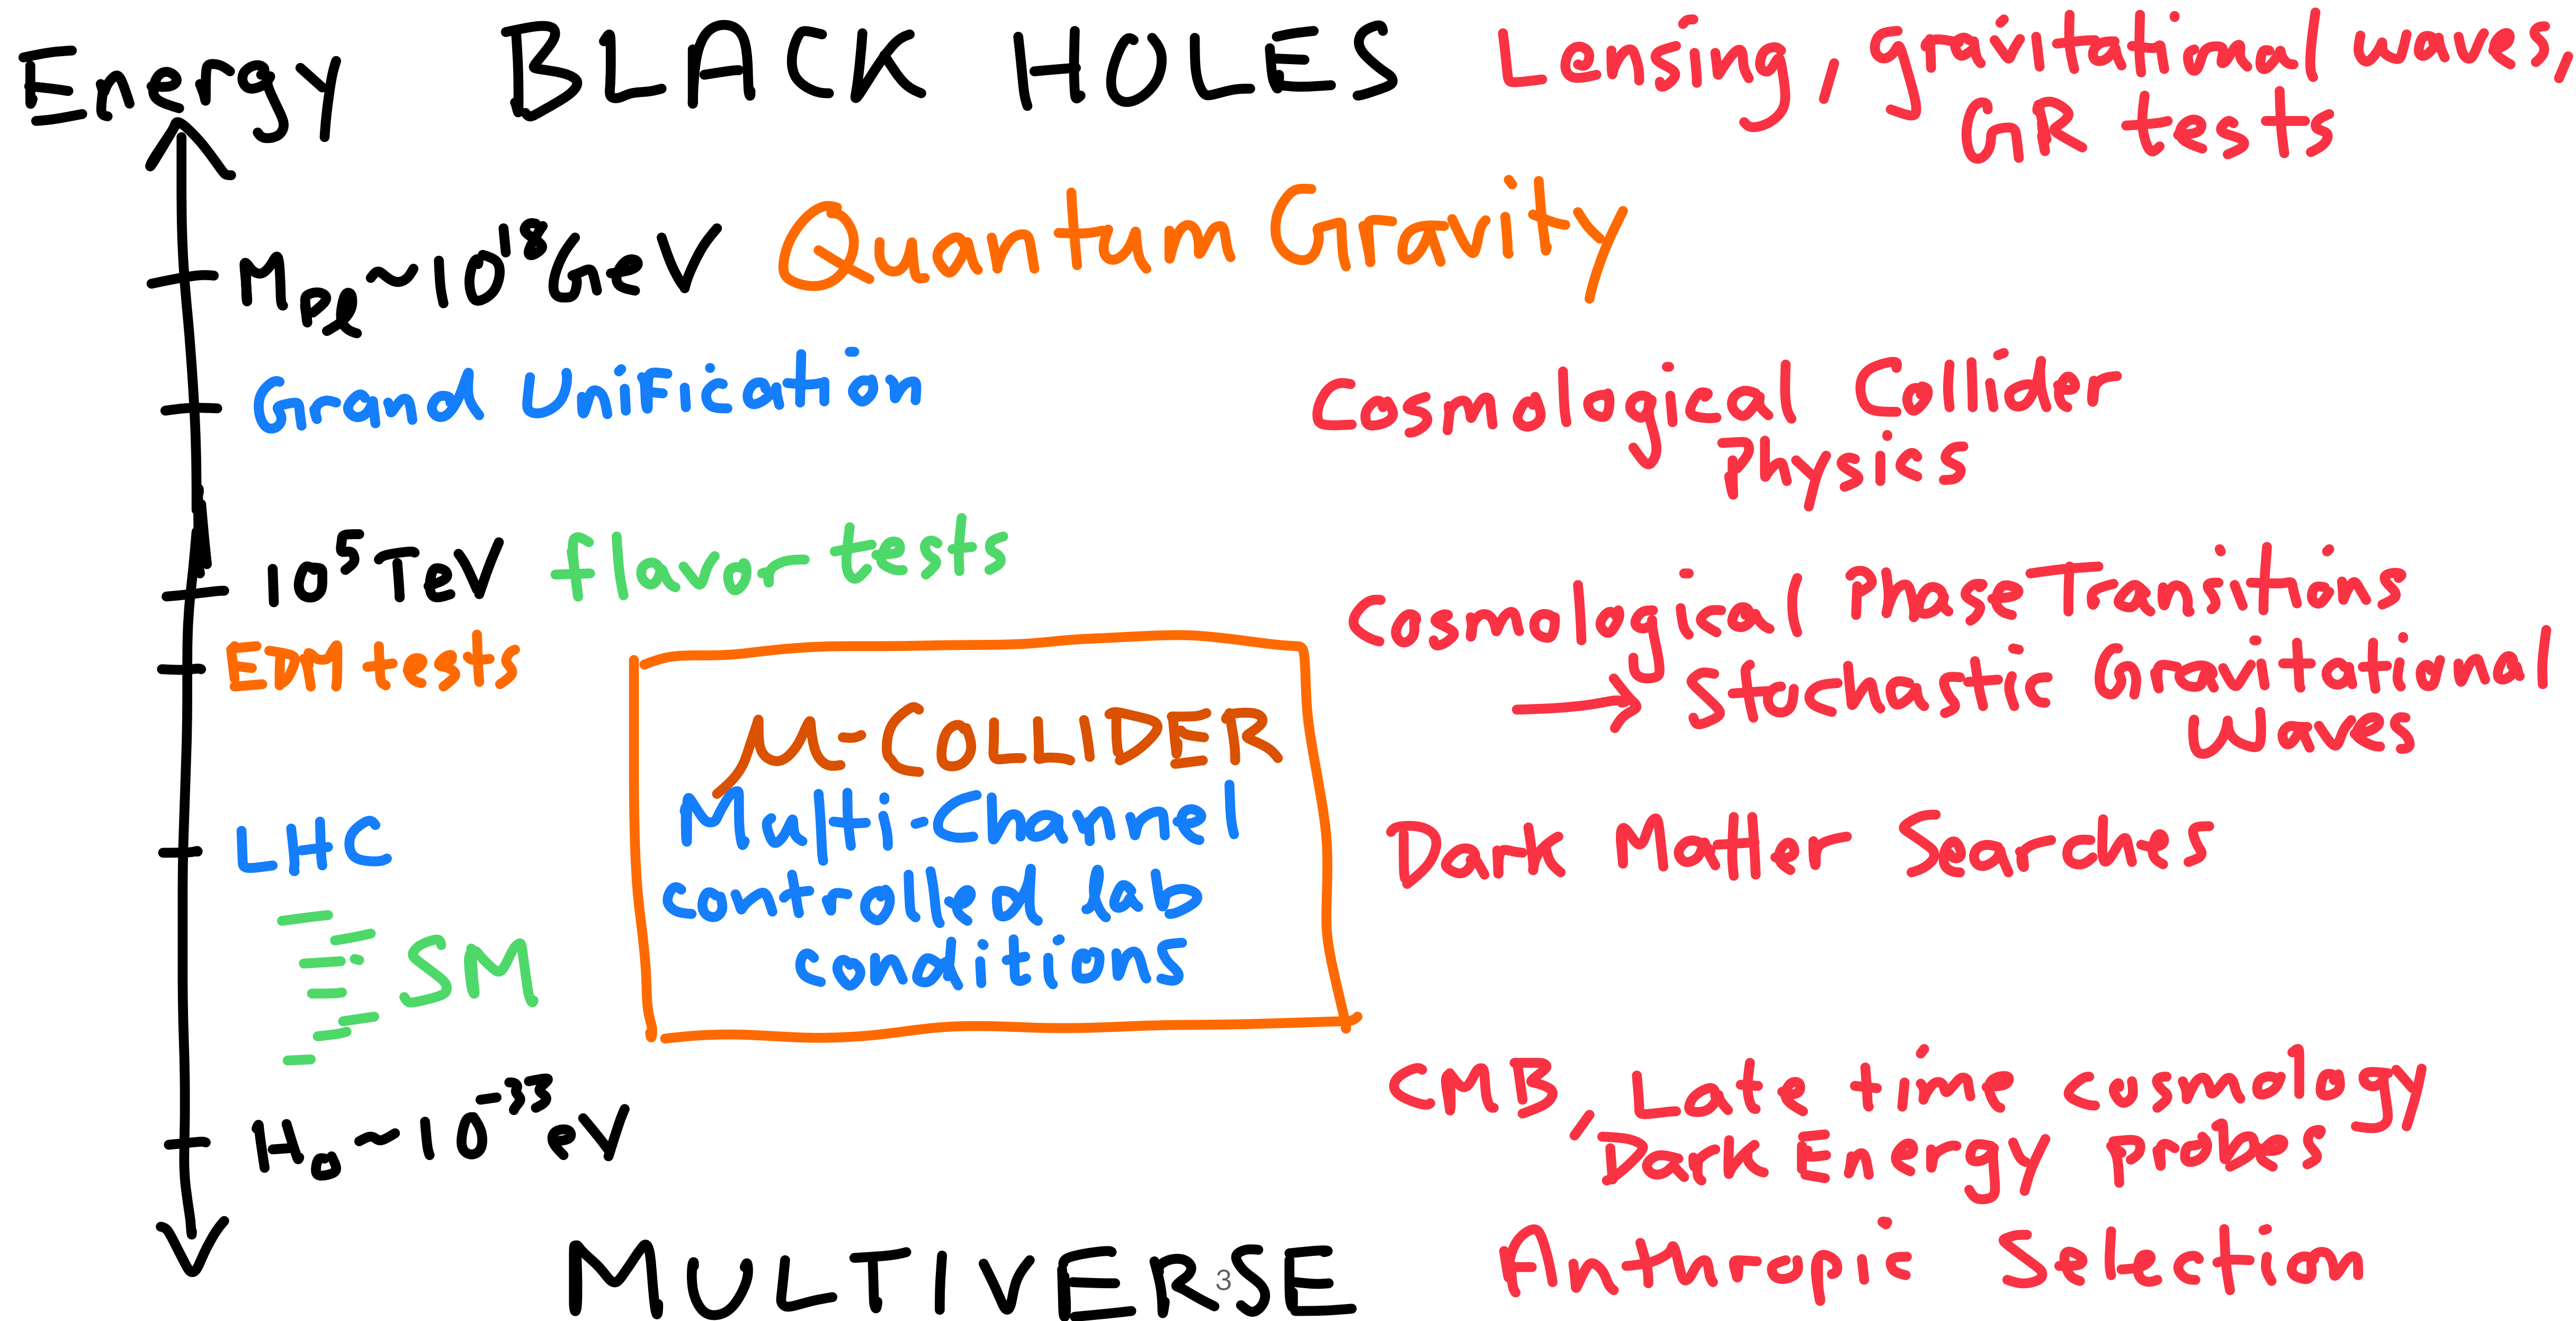 Energy BLACK HOLES Lensing, gravitational waves,
GR tests
M_Pl ~ 10^18 GeV Quantum Gravity
Grand Unification
Cosmological Collider
Physics
10^5 TeV flavor tests
Cosmological Phase Transitions
→ Stochastic Gravitational
Waves
EDM tests
μ-COLLIDER
Multi-Channel
controlled lab
conditions
LHC
Dark Matter Searches
SM
H_0 ~ 10^-33 eV
CMB, Late time cosmology
Dark Energy probes
MULTIVERSE
3
Anthropic Selection